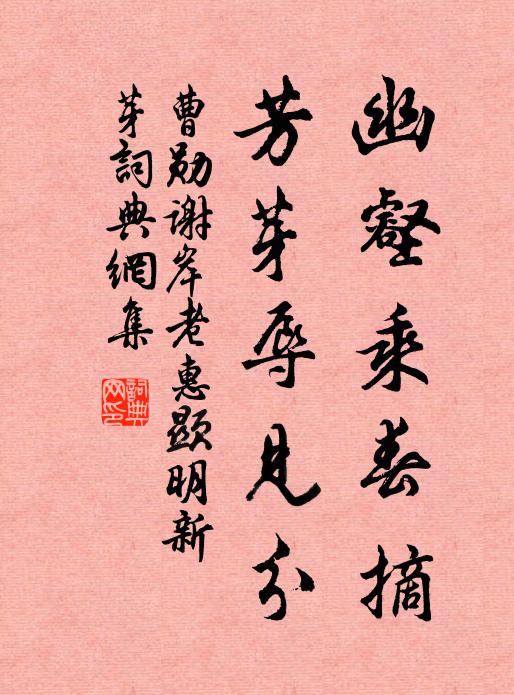 幽壑乘春摘
芳芽辱見分
曹勛謝岸老惠顯明新
芽詞典網集
詞典網印